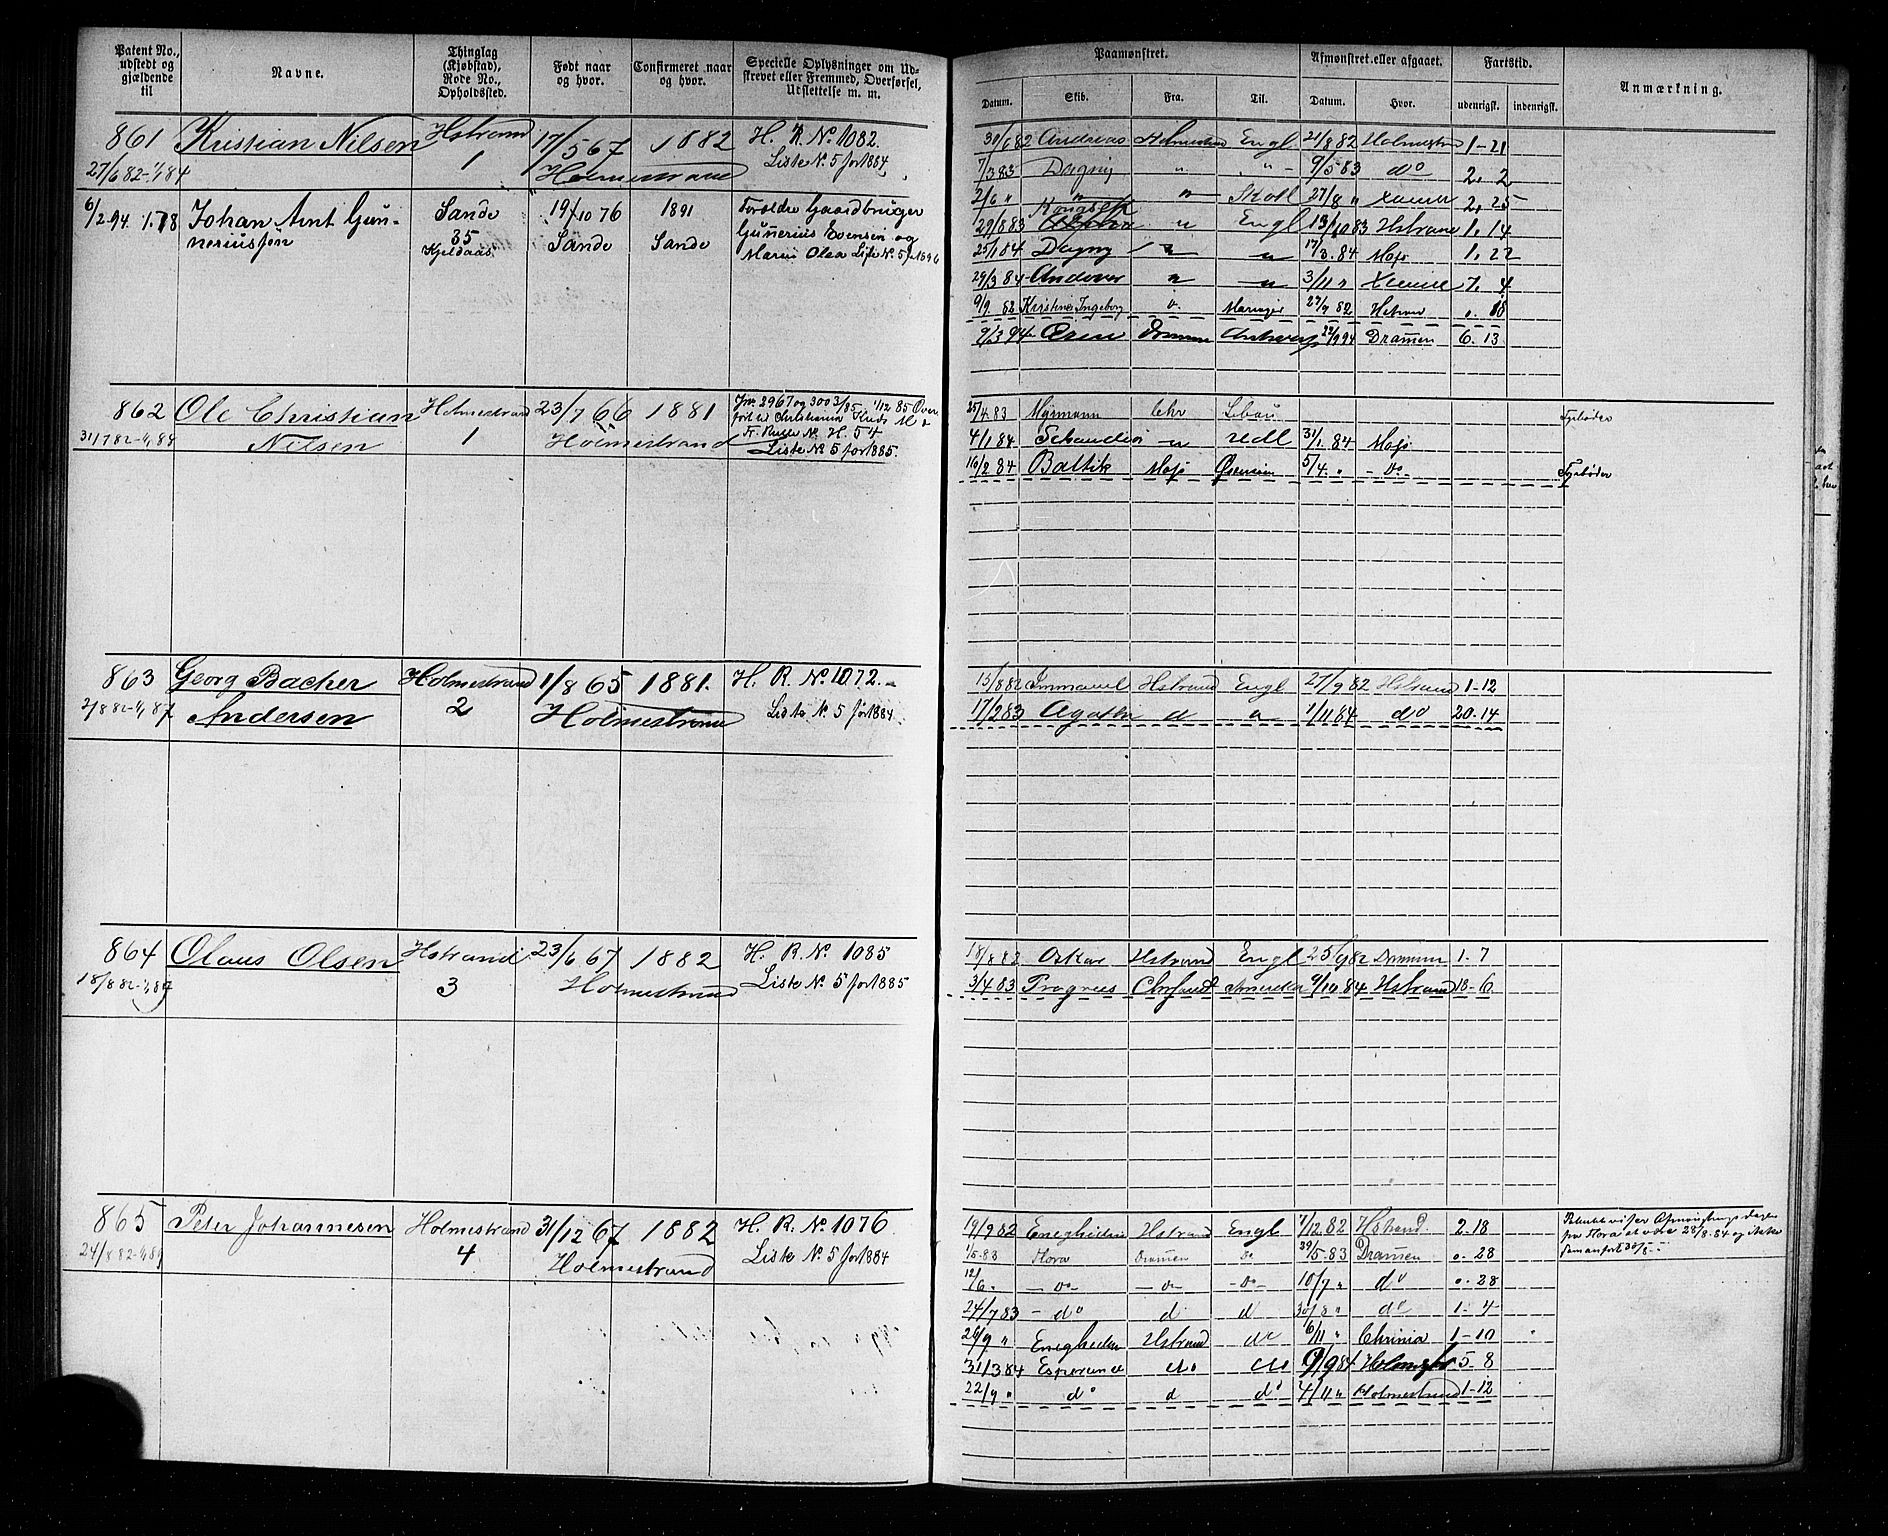 Patent No., udstedt og gjældende til
Navne.
Thinglag (Kjøbstad), Rode No., Opholdssted.
Født naar og hvor.
Confirmeret naar og hvor.
Specielle Oplysninger om Udskrevet eller Fremmed, Overførsel, Utslettelse m. m.
Paamønstret.
Datum. Skib. Fra. Til.
Afmønstret eller afgaaet.
Datum. Hvor.
Fartstid.
udenrigsk. indenrigsk.
Anmærkning.
861 Kristian Nilsen Hstrand 17/5 67 1882 H. R. No 1082.
27/6 82-1/1 84 1 Holmestrand Liste No. 5 for 1884
30/6 82 Andreas Holmestrand Engl 21/8 82 Holmestrand 1-21
7/3 83 Dagny " " 9/5 83 do 2, 2
2/6 " " " Skotl 27/8 " 2, 25
29/8 83 " Engl 13/10 83 Hstrand 1, 14
25/1 84 Dagny " " 17/3. 84 Moss 1. 22
29/3 84 " " 3/11 " 7. 4
9/9. 82 Kristine Ingeborg 82
6/2 94 Johan Arnt Gun- Sande 19/10 76 1891 Forældre Gaardbruger
neriussen 35 Sande Sande Gunerius Evensen og
Kjeldaas Maren Olea Liste No. 5 f 1896
9/3 94 Dramen 6. 13
862 Ole Christian Holmestrand 23/7 66 1881 Jnr. 2967 og 3003/85 1/12 85 Over
31/7 82-1/1 84 Nilsen 1 Holmestrand H. 54
Liste No 5 for 1885.
25/4. 83 Mysmann Chr Libau Fyrbøder
4/1 84 " 31/1. 84 Moss
16/2 84 Baltik Moss 5/4. " - do - Fyrbøder
863 Georg Bacher Holmestrand 1/8 65 1881. H. R. No 1072.-
2/8 82-1/1 87 Andersen 2 Holmestrand Liste No. 5 for 1884.
15/8 82 Immanuel Hstrand Engl 27/9 82 Hstrand 1-12
17/2 83 Agathe d " 1/11 84 do 20-14
864 Olaus Olsen Hstrand 23/6 67 1882 H. R. No. 1085
18/8 82-1/1 84 3 Holmestrand Liste No. 5 for 1885
18/8 82 Oskar Hstrand Engl 25/9 82 Drammen 1-7
3/4 83 Progress Chrsand Amerika 9/10 84 Hstrand 18-6
865 Peter Johannesen Holmestrand 31/12 67 1882 H. R. No. 1076
24/8 82-1/1 84 4 Holmestrand Liste No. 5 for 1884
19/9 82 Enegheden Hstrand Engl 7/12. 82 Hstrand. 2-18
1/5-83 Flora Dramen do 29/5-83 Dramen 0-28
12/6- - do - - do - - do - 10/7 " do 0-28
24/7 83 - do d d 30/8 " do 1-4
26/9 " Enegheden Hstrand do 6/11 " Chrinia 1-10
31/3 84 Esperance do do 9/9 84 5-8
22/9 " do d do 4/11 " Holmestrand 1-12